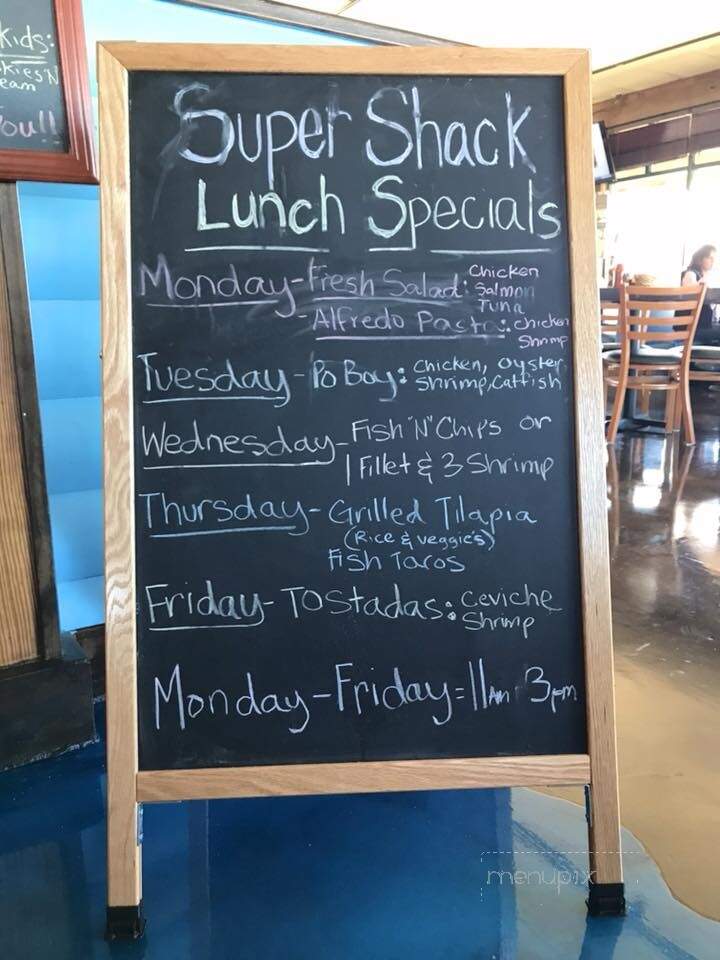 kids:
kies 'N
eam
you!!
Super Shack
Lunch Specials
Monday - Fresh Salad: Chicken
Salmon
Tuna
- Alfredo Pasta: chicken
Shrimp
Tuesday - Po Boy: Chicken, Oyster,
Shrimp, Catfish
Wednesday - Fish "N" Chips or
1 Fillet & 3 Shrimp
Thursday - Grilled Tilapia
(Rice & veggie's)
Fish Tacos
Friday - Tostadas: Ceviche
Shrimp
Monday - Friday = 11am 3pm
menupix